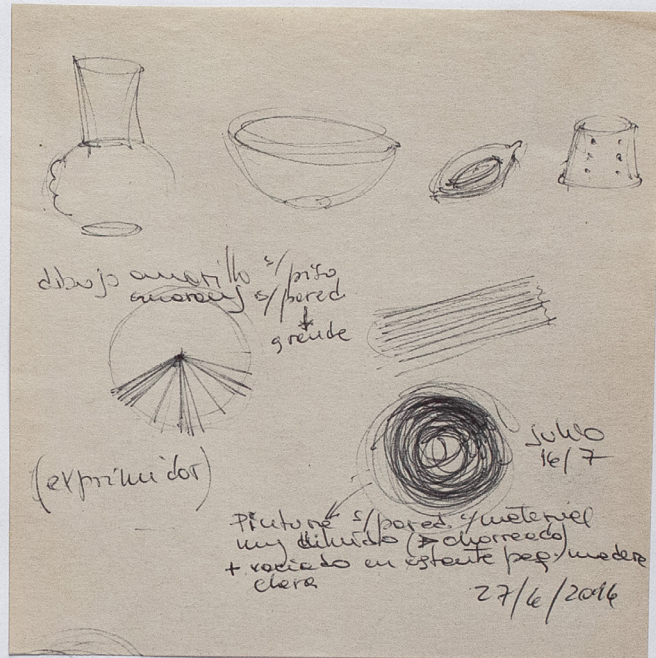 dibujo amarillo s/piso
naranj s/pared
grande
(exprimidor)
julio
16/7
Pintura s/pared y/material
muy diluido (→ chorreado)
+ vaciado en estante peq. madera
clara
27/6/2016